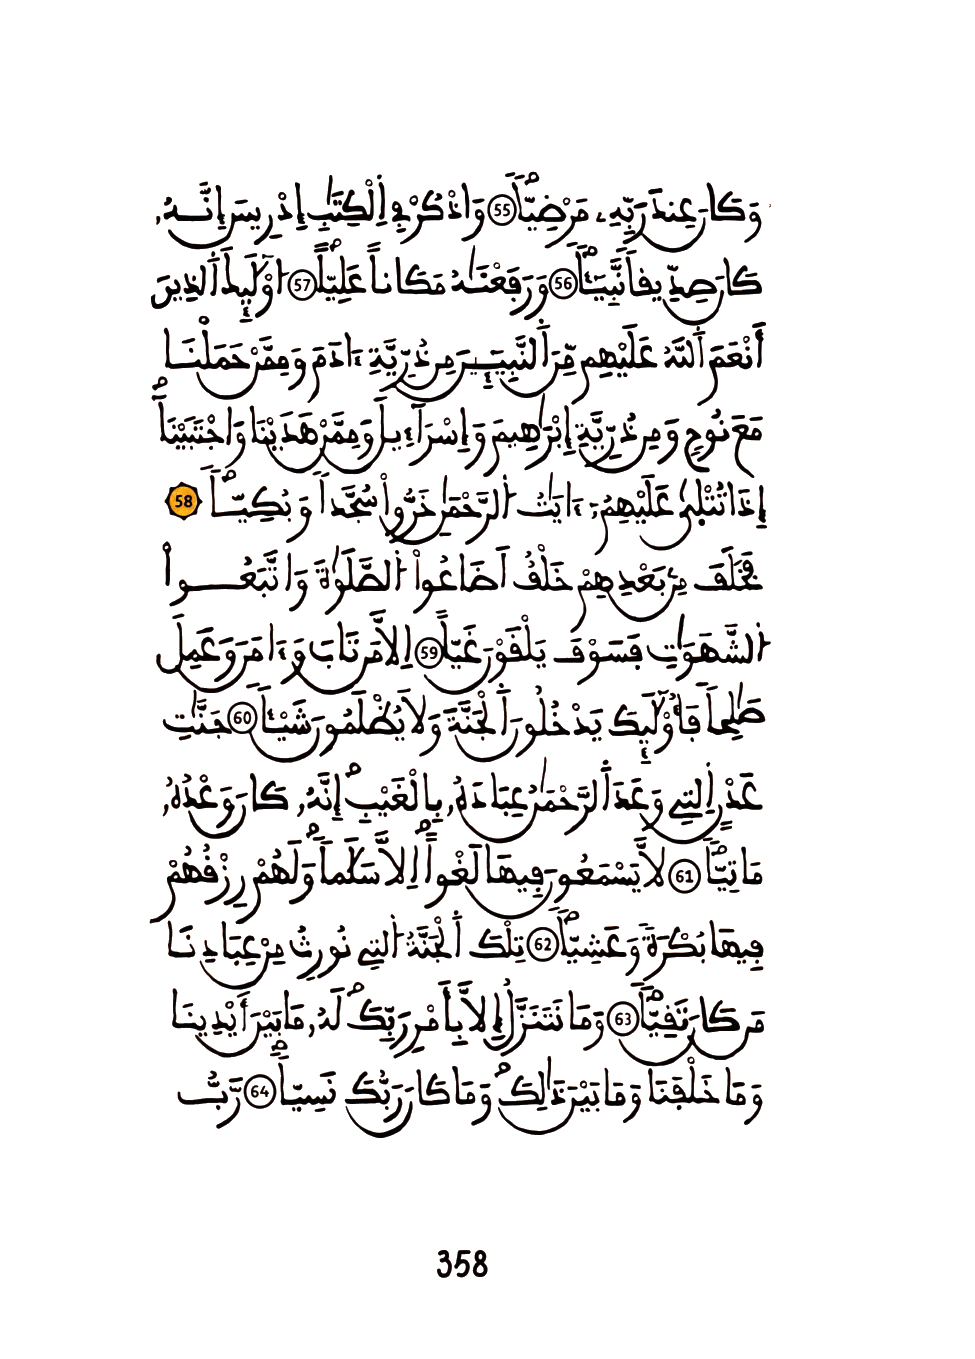 وَكَانَ عِندَ رَبِّهِۦ مَرْضِيّاً 55 وَاذْكُرْ فِے اِلْكِتَٰبِ إِدْرِيسَ إِنَّهُۥ
كَانَ صِدِّيقاً نَّبِيٓـٔاً 56 وَرَفَعْنَٰهُ مَكَاناً عَلِيّاً 57 ا۟وْلَٰٓئِكَ اَ۬لذِينَ
أَنْعَمَ اَ۬للَّهُ عَلَيْهِم مِّنَ اَ۬لنَّبِيٓـِٕۧنَ مِن ذُرِّيَّةِ ءَادَمَ وَمِمَّنْ حَمَلْنَا
مَعَ نُوحٍ وَمِن ذُرِّيَّةِ إِبْرَٰهِيمَ وَإِسْرَآءِيلَ وَمِمَّنْ هَدَيْنَا وَاجْتَبَيْنَآ
إِذَا تُتْلَىٰ عَلَيْهِمُۥٓ ءَايَٰتُ اُ۬لرَّحْمَٰنِ خَرُّواْ سُجَّداً وَبُكِيّاً 58
فَخَلَفَ مِنۢ بَعْدِهِمْ خَلْفٌ اَضَاعُواْ اُ۬لصَّلَوٰةَ وَاتَّبَعُواْ
اُ۬لشَّهَوَٰتِ فَسَوْفَ يَلْقَوْنَ غَيّاً 59 اِلَّا مَن تَابَ وَءَامَنَ وَعَمِلَ
صَٰلِحاً فَأُوْلَٰٓئِكَ يَدْخُلُونَ اَ۬لْجَنَّةَ وَلَا يُظْلَمُونَ شَيْـٔاً 60 جَنَّٰتِ
عَدْنٍ اِ۬لتِے وَعَدَ اَ۬لرَّحْمَٰنُ عِبَادَهُۥ بِالْغَيْبِ إِنَّهُۥ كَانَ وَعْدُهُۥ
مَاتِيّاً 61 لَّا يَسْمَعُونَ فِيهَا لَغْواً اِلَّا سَلَٰماً وَلَهُمْ رِزْقُهُمْ
فِيهَا بُكْرَةً وَعَشِيّاً 62 تِلْكَ اَ۬لْجَنَّةُ اُ۬لتِے نُورِثُ مِنْ عِبَادِنَا
مَن كَانَ تَقِيّاً 63 وَمَا نَتَنَزَّلُ إِلَّا بِأَمْرِ رَبِّكَ لَهُۥ مَا بَيْنَ أَيْدِينَا
وَمَا خَلْفَنَا وَمَا بَيْنَ ذَٰلِكَ وَمَا كَانَ رَبُّكَ نَسِيّاً 64 رَّبُّ
358